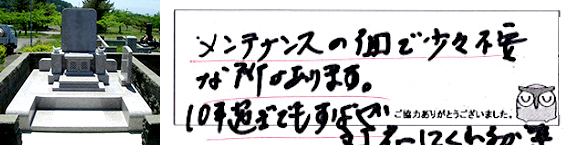 メンテナンスの面で少々不安
な所があります。
10年過ぎでもすぐ
ご協力ありがとうございました。
してくれるか